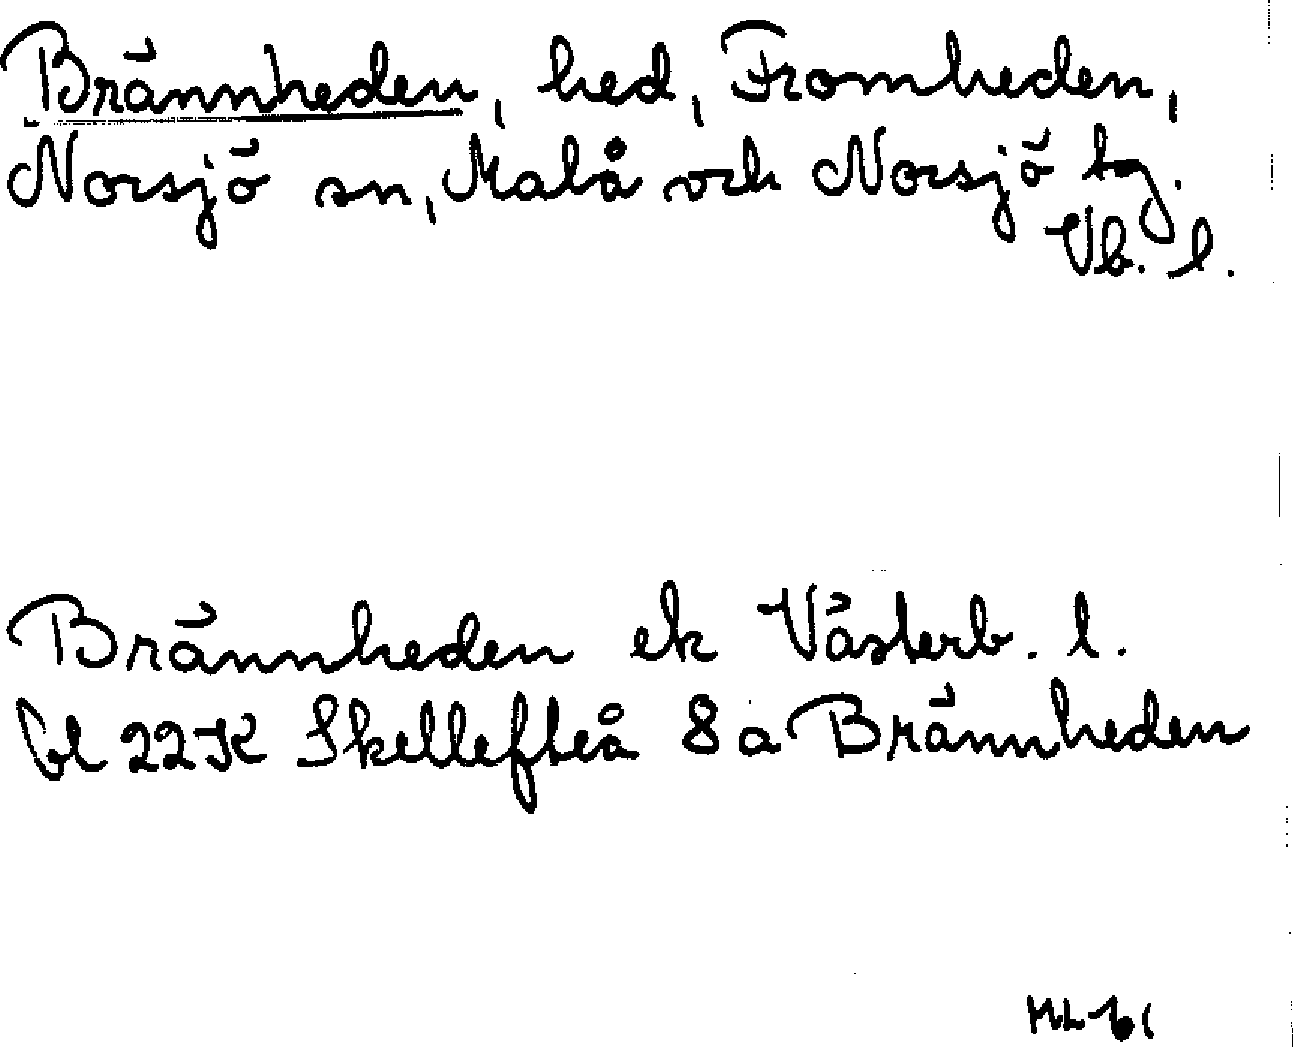 Brännheden, hed, Fromheden,
Norsjö sn, Malå och Norsjö tg.
Vb. l.
Brännheden ek Västerb. l.
bl 22K Skellefteå 8a Brännheden